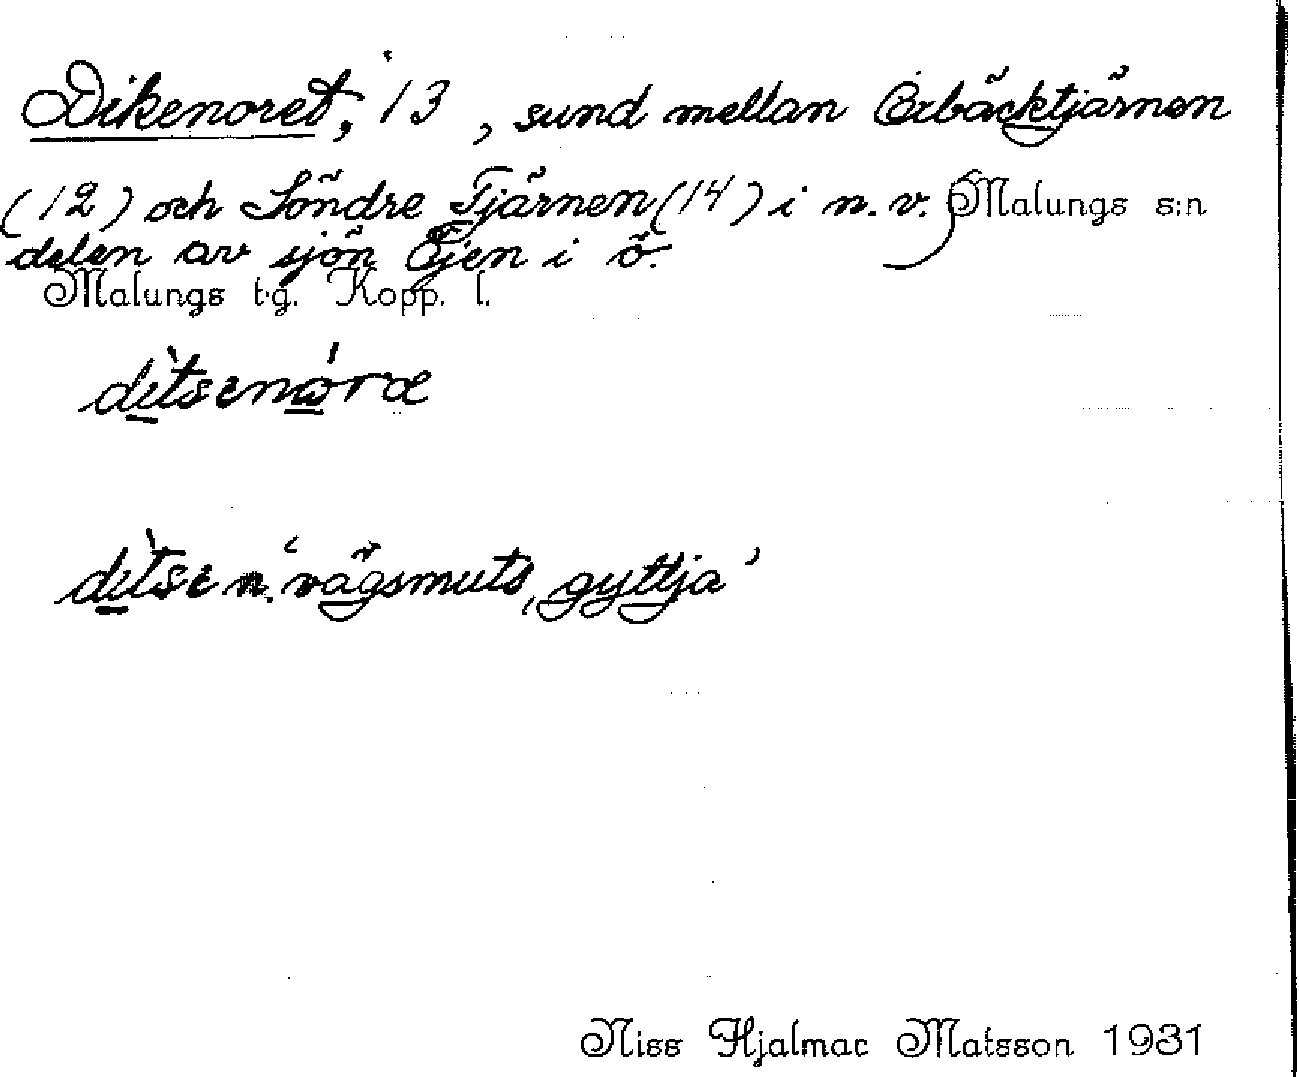 Dikenoret, 13, sund mellan Örbäcktjärnen
(12) och Söndre Tjärnen (14) i n.v. Malungs s:n
delen av sjön Öjen i ö.
Malungs t.g. Kopp. l.
vägsmuts, gyttja'
Niss Hjalmar Matsson 1931